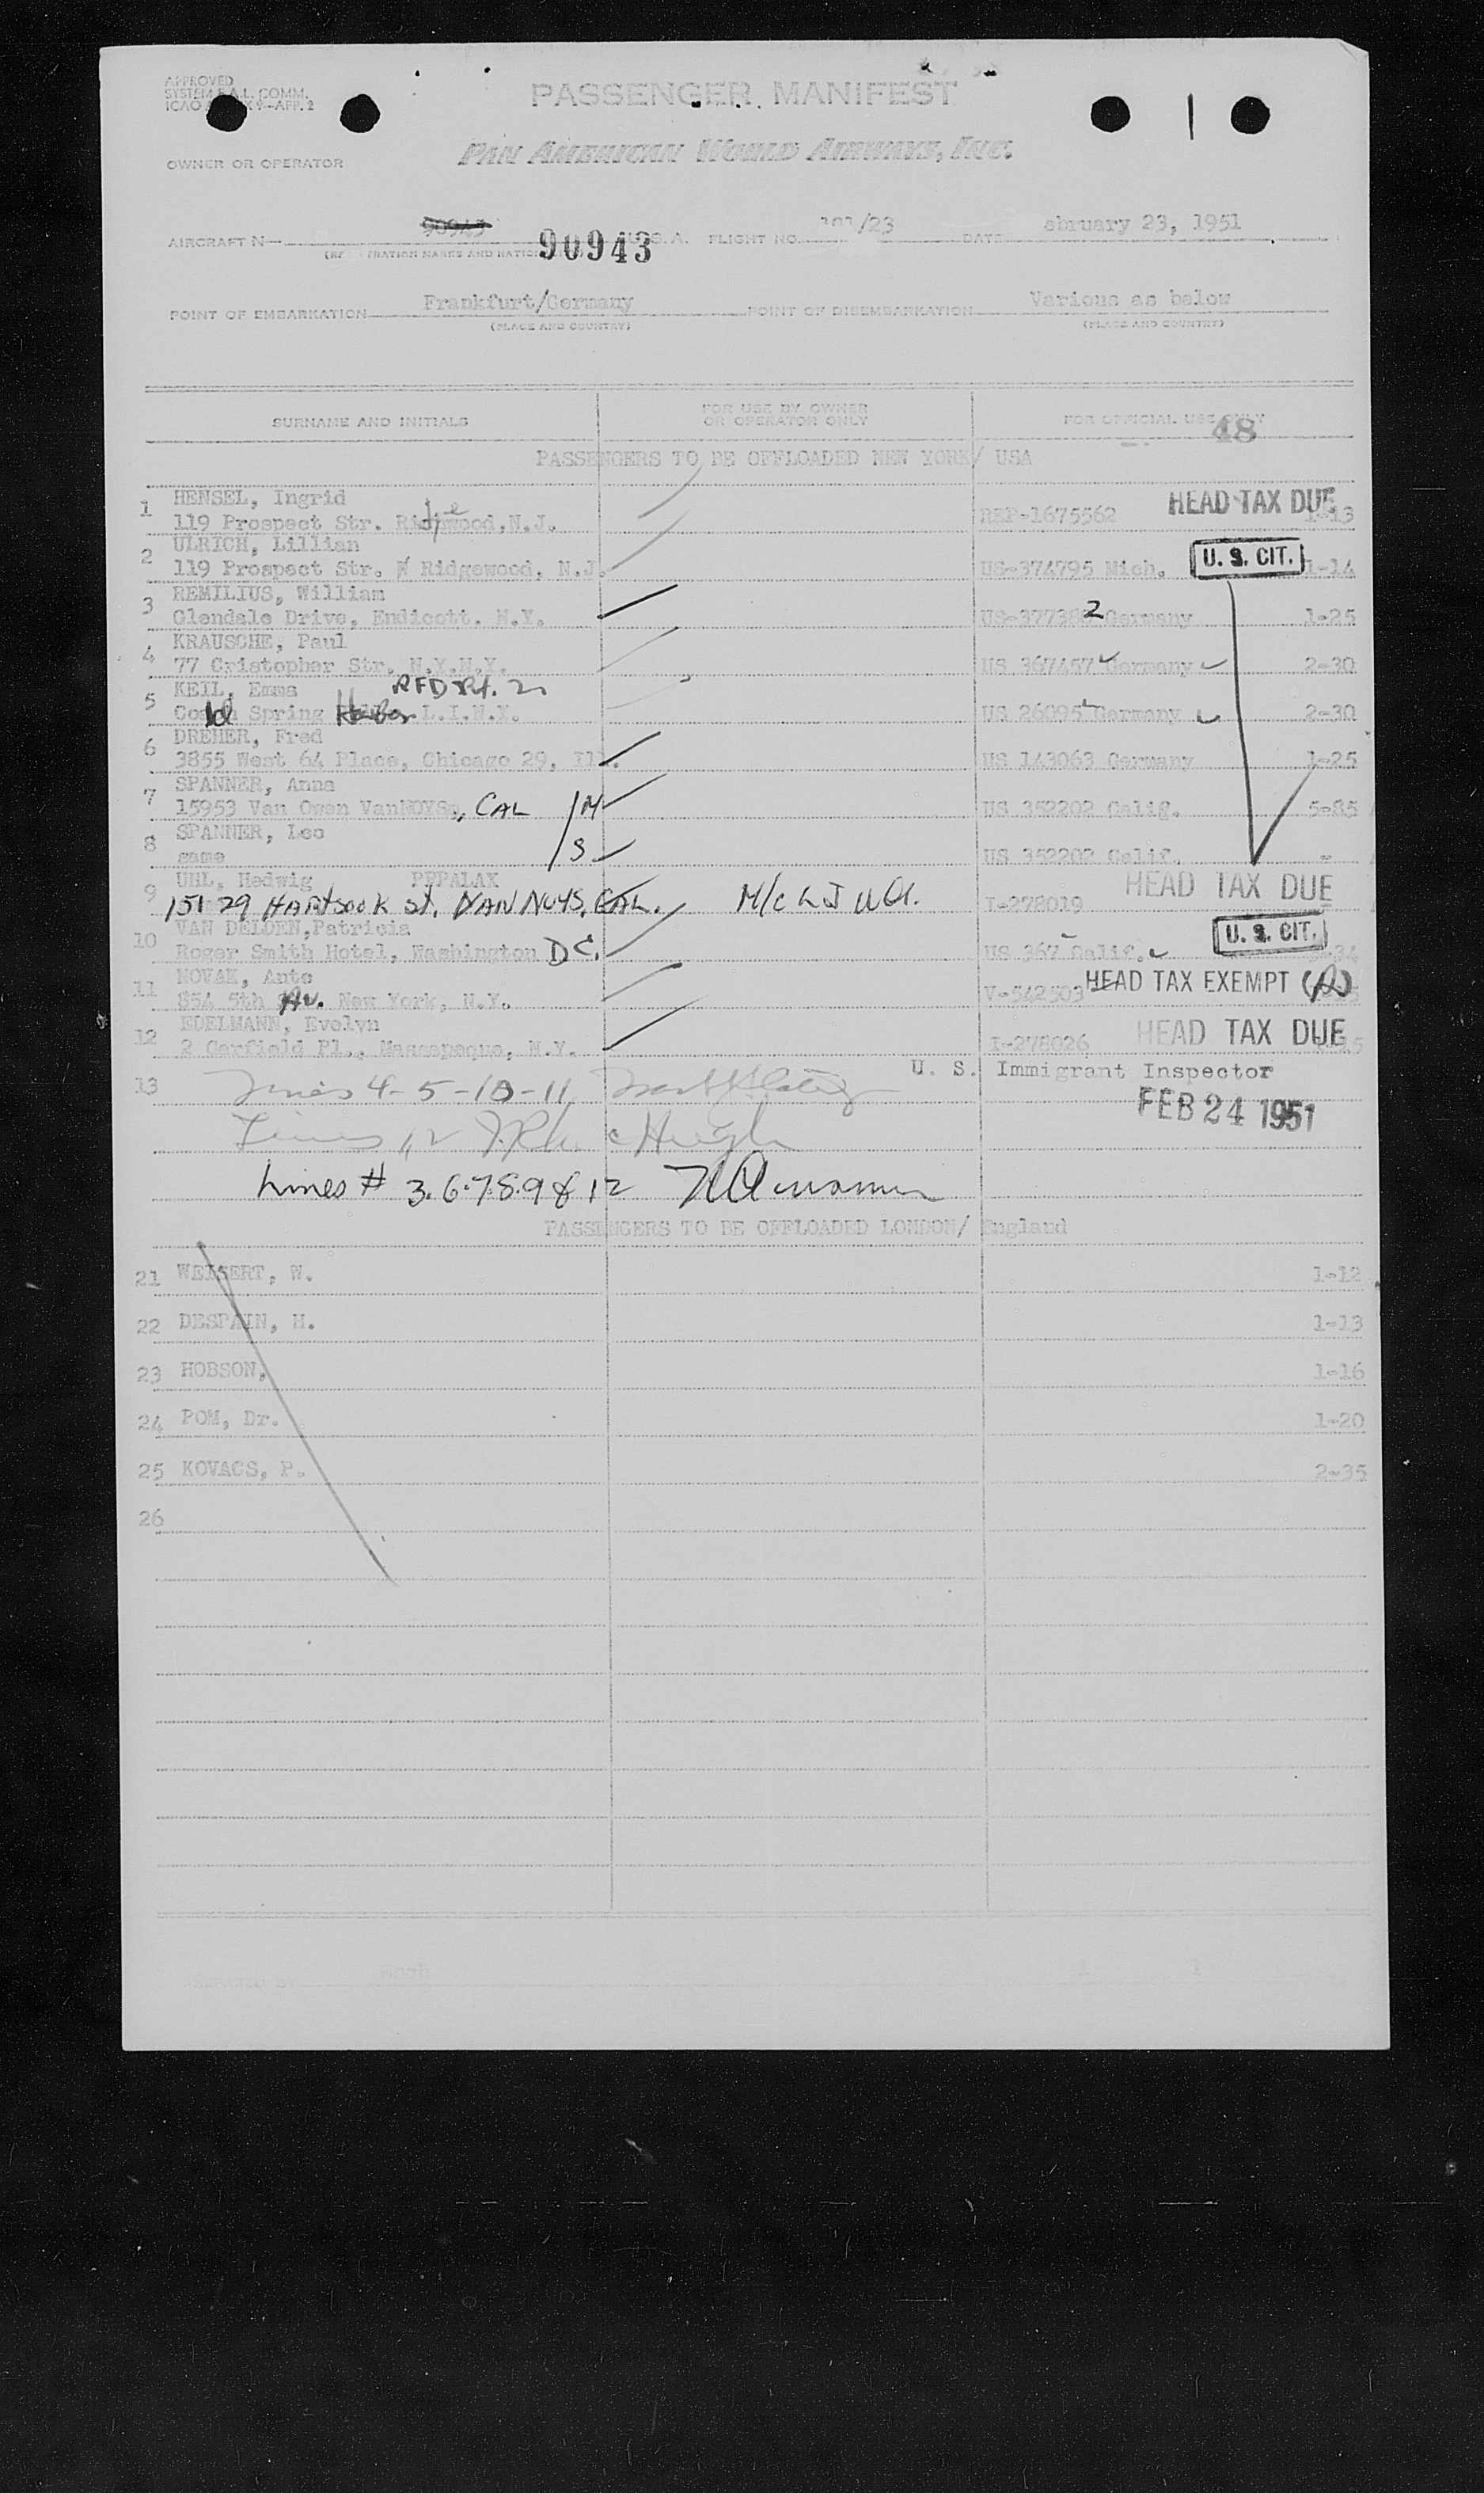 APPROVED
SYSTEM F.A.L. COMM.
ICAO 9-APP. 2
PASSENGER MANIFEST
OWNER OR OPERATOR
PAN AMERICAN WORLD AIRWAYS, INC.
90943
AIRCRAFT N- 90943 S.A. FLIGHT NO. /23 DATE ebruary 23, 1951
POINT OF EMBARKATION Frankfurt/Germany POINT OF DISEMBARKATION Various as below
(PLACE AND COUNTRY) (PLACE AND COUNTRY)
SURNAME AND INITIALS FOR USE BY OWNER OR OPERATOR ONLY FOR OFFICIAL USE ONLY
48
PASSENGERS TO BE OFFLOADED NEW YORK/ USA
1 HENSEL, Ingrid HEAD TAX DUE
119 Prospect Str. Ridgewood, N.J. REP-1675562 1-13
2 ULRICH, Lillian U. S. CIT.
119 Prospect Str. Ridgewood, N.J. US-374795 Mich. 1-14
3 REMILIUS, William
Glendale Drive, Endicott. N.Y. US-377382 Germany 1-25
4 KRAUSCHE, Paul
77 Cristopher Str. N.Y.N.Y. US 367457 Germany 2-30
5 KEIL, Emma RFD Rt. 2
Cold Spring Harbor L.I.N.Y. US 26095 Germany 2-30
6 DREHER, Fred
3855 West 64 Place, Chicago 29, Ill. US 143063 Germany 1-25
7 SPANNER, Anna
15953 Van Owen VanNUYS, CAL /M US 352202 Calif. 5-85
8 SPANNER, Leo
same /S US 352202 Calif. -
9 UHL, Hedwig PEPALAX HEAD TAX DUE
15129 HARTSOOK St. VAN NUYS, CAL. M/c I-278019
10 VAN DELDEN, Patricia U. S. CIT.
Roger Smith Hotel, Washington D.C. US 367 Calif. 34
11 NOVAK, Ante HEAD TAX EXEMPT (A)
854 5th Av. New York, N.Y. V-542503
12 EDELMANN, Evelyn HEAD TAX DUE
2 Garfield Pl., Massapequa, N.Y. I-278026
U. S. Immigrant Inspector
13 Lines 4-5-10-11
FEB 24 1951
Lines 1, 2
Lines # 3.6.7.8.9 & 12
PASSENGERS TO BE OFFLOADED LONDON/ England
21 WEISERT, W. 1-12
22 DESPAIN, H. 1-13
23 HOBSON, 1-16
24 POM, Dr. 1-20
25 KOVACS, P. 2-35
26